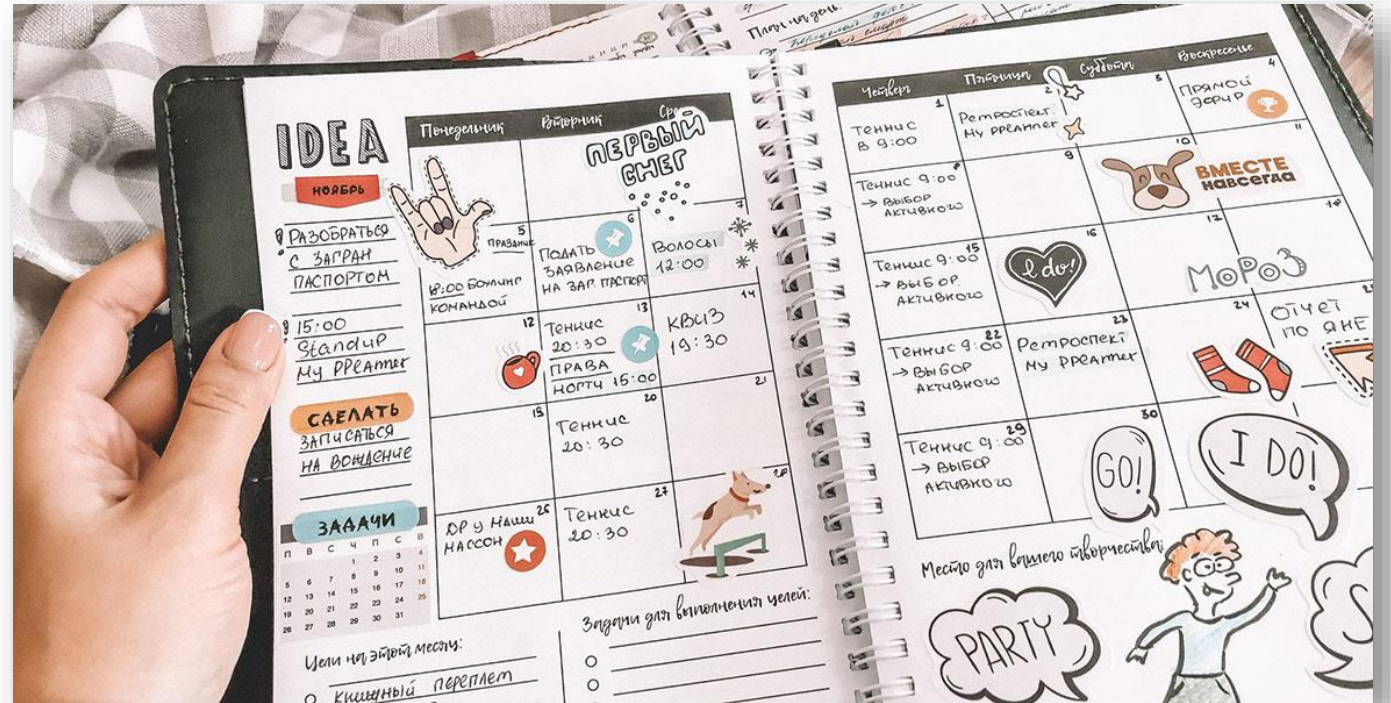 План на день:
IDEA
НОЯБРЬ
РАЗОБРАТЬСЯ
С ЗАГРАН
ПАСПОРТОМ
15:00
Standup
My PPeamer
СДЕЛАТЬ
ЗАПИСАТЬСЯ
НА ВОЖДЕНИЕ
ЗАДАЧИ
П В С Ч П С В
1 2 3 4
5 6 7 8 9 10 11
12 13 14 15 16 17 18
19 20 21 22 23 24 25
26 27 28 29 30 31
Понедельник Вторник
ПЕРВЫЙ
СНЕГ
5
ПРАЗДНИК
18:00 БОУЛИНГ
КОМАНДОЙ
6
ПОДАТЬ
ЗАЯВЛЕНИЕ
НА ЗАГ. ПАСПОРТ
7
ВОЛОСЫ
12:00
12
13
ТЕННИС
20:30
ПРАВА
НОГТИ 15:00
14
КВИЗ
19:30
19
20
ТЕННИС
20:30
21
26
ДР У МАШИ
МАССОН
27
ТЕННИС
20:30
28
Цели на этот месяц:
КНИЖНЫЙ ПЕРЕПЛЕТ
Задачи для выполнения целей:
Четверг Пятница Суббота Воскресенье
1
ТЕННИС
В 9:00
2
РЕТРОСПЕКТ.
My PPeamer
3
4
ПРЯМОЙ
ЭФИР
8
ТЕННИС 9:00
→ ВЫБОР
АКТИВНОГО
9
10
ВМЕСТЕ
навсегда
11
15
ТЕННИС 9:00
→ ВЫБОР
АКТИВНОГО
16
I do!
17
18
МОРОЗ
22
ТЕННИС 9:00
→ ВЫБОР
АКТИВНОГО
23
РЕТРОСПЕКТ
My PPeamer
24
ОТЧЕТ
ПО ЯНЕ
29
ТЕННИС 9:00
→ ВЫБОР
АКТИВНОГО
30
GO!
I DO!
Место для вашего творчества:
PARTY